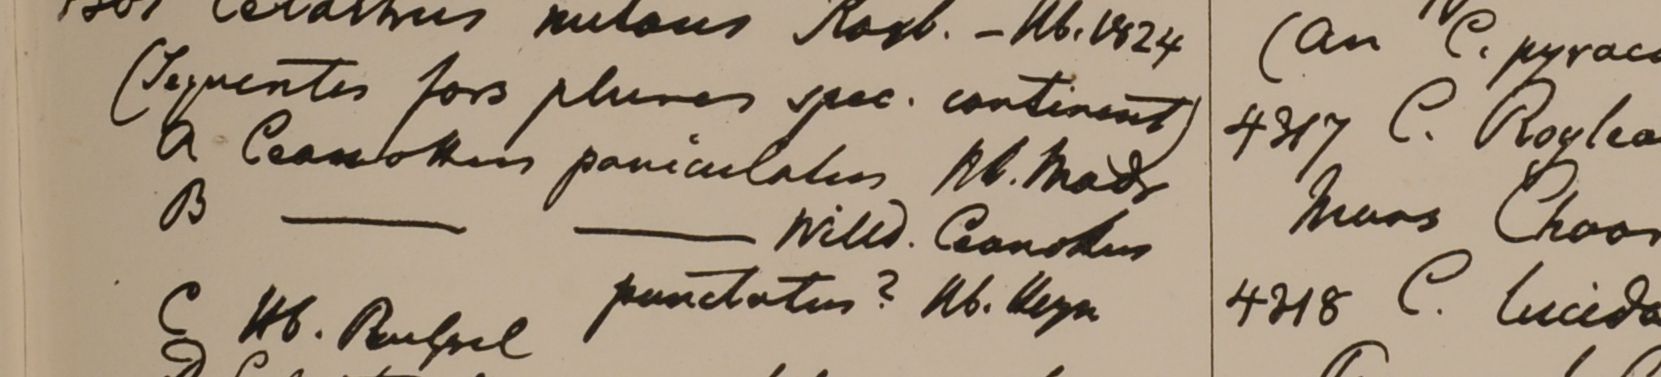 Celastrus nutans Roxb. - Hb. 1824
(Sequentes fors plures spec. continent)
A Ceanothus paniculatus Hb. Madr
B — — Willd. Ceanothus
punctatus? Hb. Heyn
C Hb.
D
(an C. pyrac
4317 C. Roylea
Mons Choor
4318 C. lucida